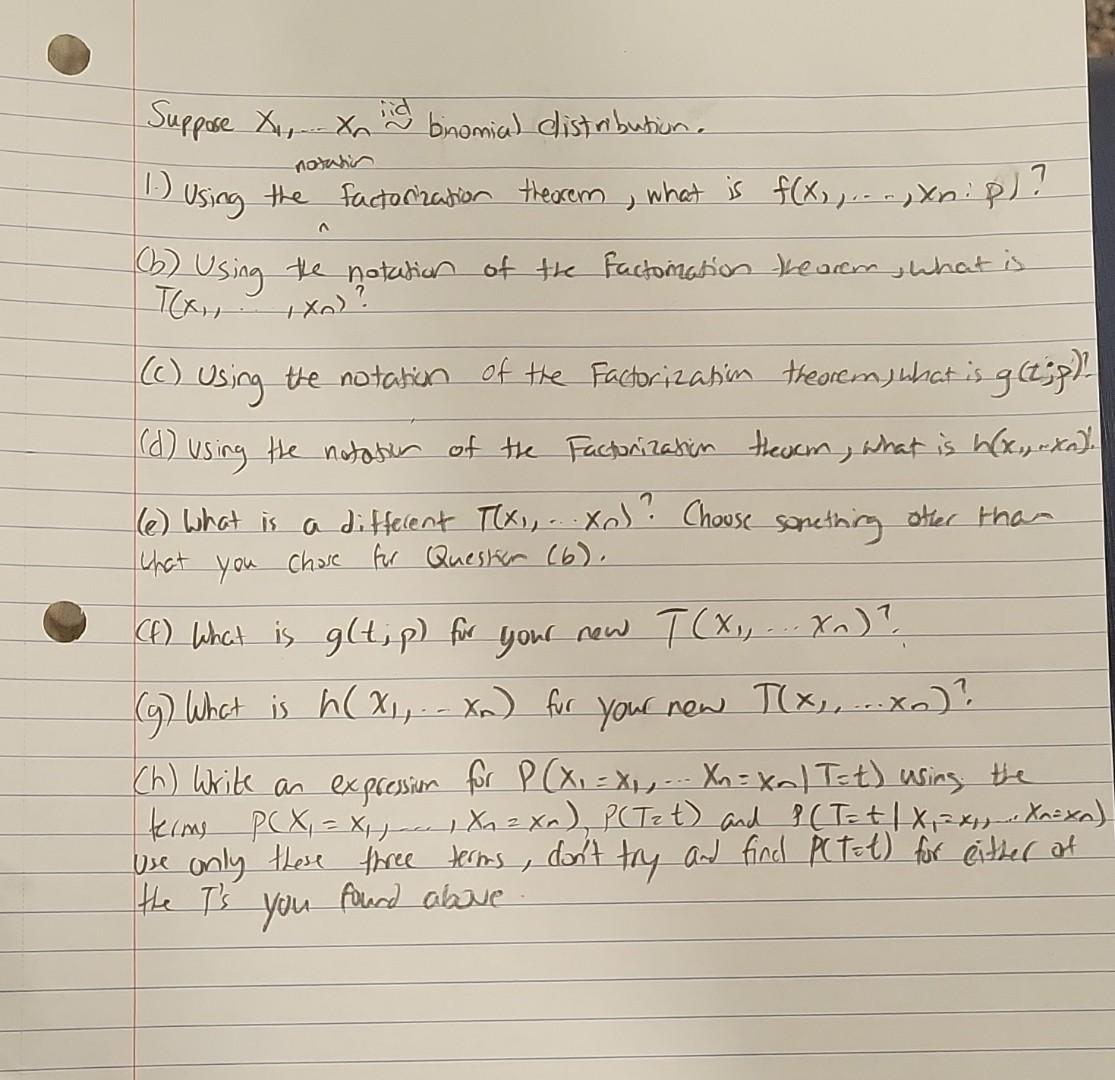 Suppose X₁, ... Xₙ iid ~ binomial distribution.
notation
1.) Using the ^ factorization theorem, what is f(x₁, ..., xₙ: p)?
(b) Using the notation of the Factorization theorem, what is
T(x₁, ..., xₙ)?
(c) Using the notation of the Factorization theorem, what is g(t;p)?
(d) Using the notation of the Factorization theorem, what is h(x₁, ..xₙ)?
(e) What is a different T(x₁, ... xₙ)? Choose something other than
what you chose for Question (b).
(f) What is g(t; p) for your new T(x₁, ... xₙ)?
(g) What is h(x₁, .. xₙ) for your new T(x₁, ... xₙ)?
(h) Write an expression for P(X₁ = x₁, ... Xₙ = xₙ | T=t) using the
terms P(X₁ = x₁, ..., Xₙ = xₙ), P(T=t) and P(T=t | X₁=x₁, ... Xₙ=xₙ)
Use only these three terms, don't try and find P(T=t) for either of
the T's you found above.